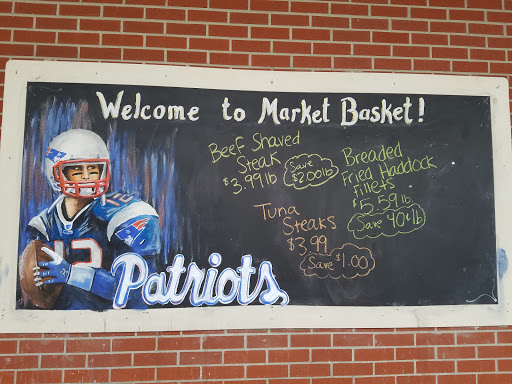 Welcome to Market Basket!
Beef Shaved
Steak
$3.99 lb
Save
$2.00 lb
Breaded
Fried Haddock
Fillets
$5.59 lb
Save 90¢ lb
Tuna
Steaks
$3.99
Save $1.00
12
12
Patriots